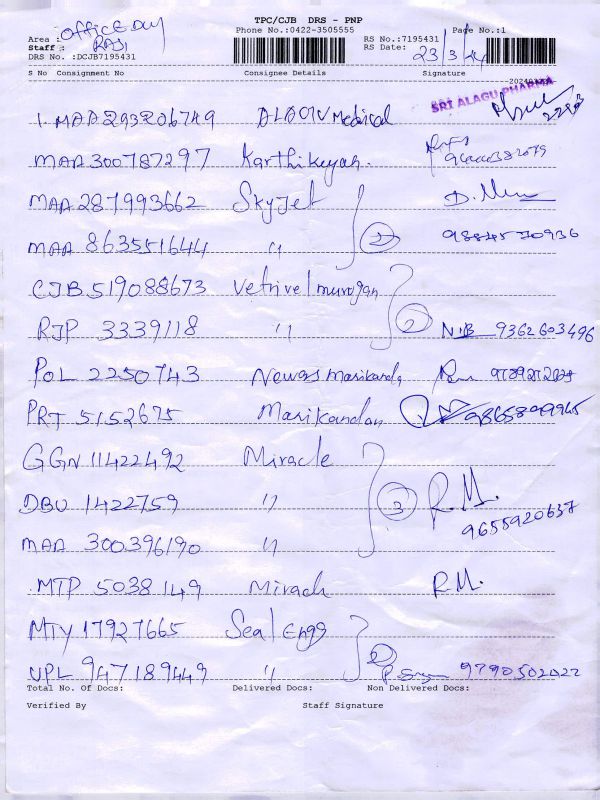 TPC/CJB DRS - PNP
Phone No.:0422-3505555 Page No.:1
Area : OFFICEDAY RS No.:7195431
Staff : RAJI RS Date: 23/3/24
DRS No. :DCJB7195431
S No Consignment No Consignee Details Signature
SRI ALAGU PHARMA
1. MAA293206749 Medical
MAA300787297 Karthikeyan.
MAA 287993662 SkyJet D.
MAA 863551644 〃 2 9884570936
CJB519088673 Vetrivel murugan
RJP 3339118 〃 2 9362603496
POL 2250743 Newass Manikanda
PRT 5152675 Manikandan 9865809965
GGN 11422492 Miracle
DBU 1422759 〃 3 R.M.
MAA 300396190 〃 9655920637
MTP 5038149 Mirach R.M.
MTY 17927665 Seal Engg
UPL 947189449 〃 2 9790502022
Total No. Of Docs: Delivered Docs: Non Delivered Docs:
Verified By Staff Signature